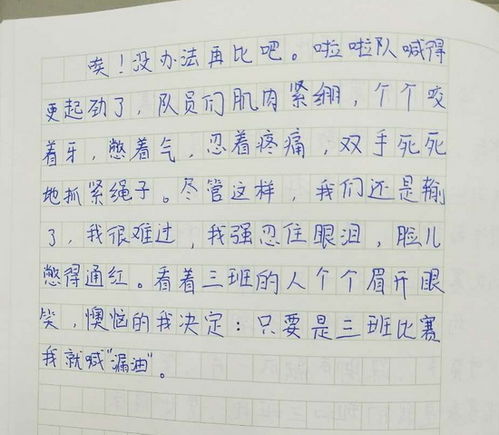 唉！没办法再比吧。啦啦队喊得
更起劲了，队员们肌肉紧绷，个个咬
着牙，憋着气，忍着疼痛，双手死死
地抓紧绳子。尽管这样，我们还是输
了，我很难过，我强忍住眼泪，脸儿
憋得通红。看着三班的人个个眉开眼
笑，懊恼的我决定：只要是三班比赛
我就喊"漏油"。